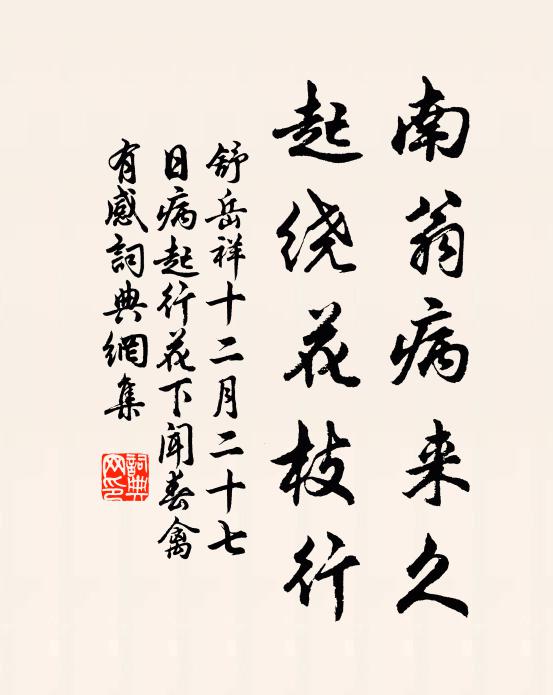 南翁病来久
起绕花枝行
舒岳祥十二月二十七
日病起行花下闻春禽
有感詞典網集
詞典
网印